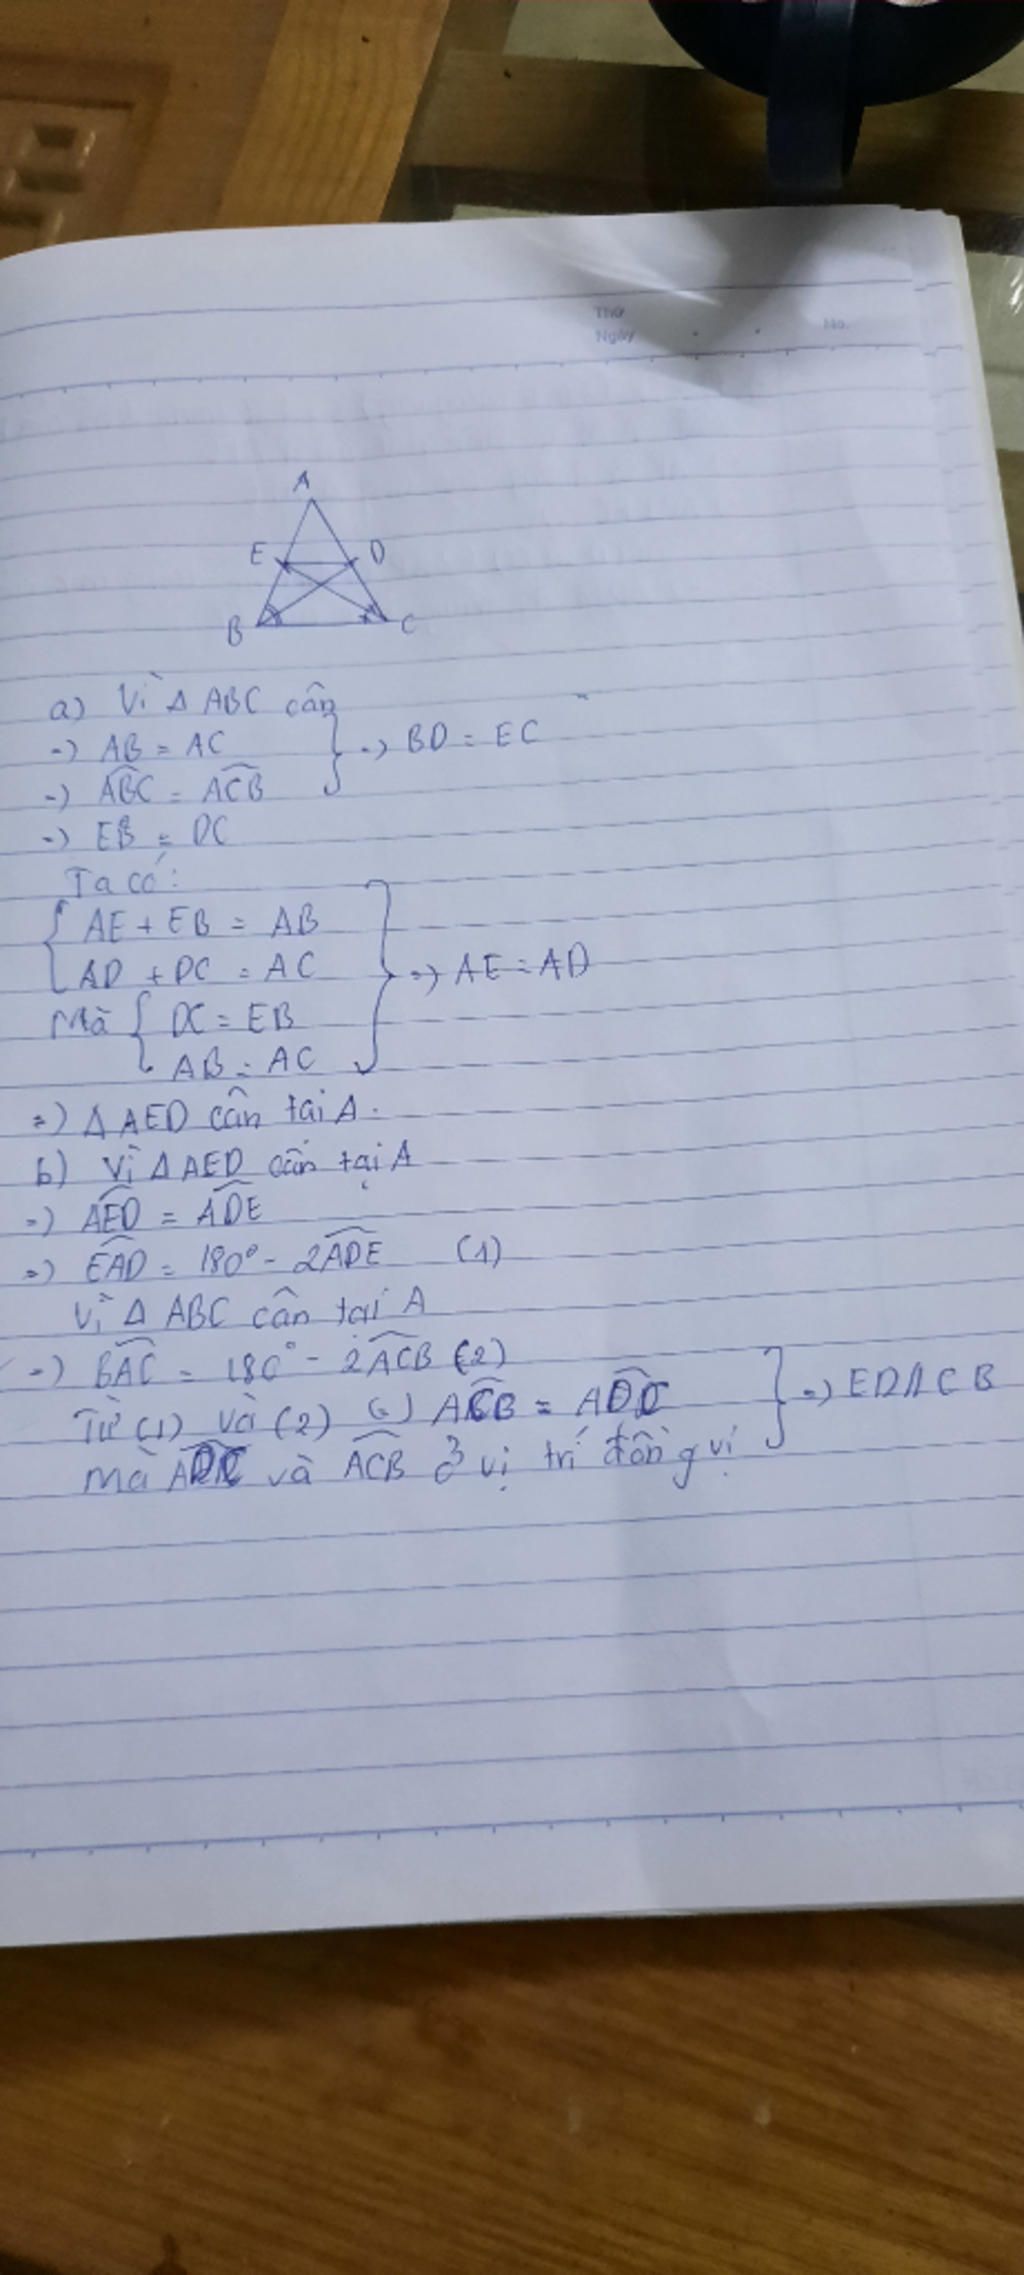 Thứ
Ngày
No.
A
E D
B C
a) Vì Δ ABC cân
=) AB = AC
=) ABC = ACB
=) BD = EC
=) EB = DC
Ta có:
AE + EB = AB
AD + DC = AC
Mà DC = EB
AB = AC
=) AE = AD
=) Δ AED cân tai A.
b) Vì Δ AED cân tại A
=) AED = ADE
=) EAD = 180° - 2ADE (1)
Vì Δ ABC cân tại A
=) BAC = 180° - 2ACB (2)
Từ (1) và (2) ACB =
Mà và ACB ở vị trí đồng vị
=) ED // CB